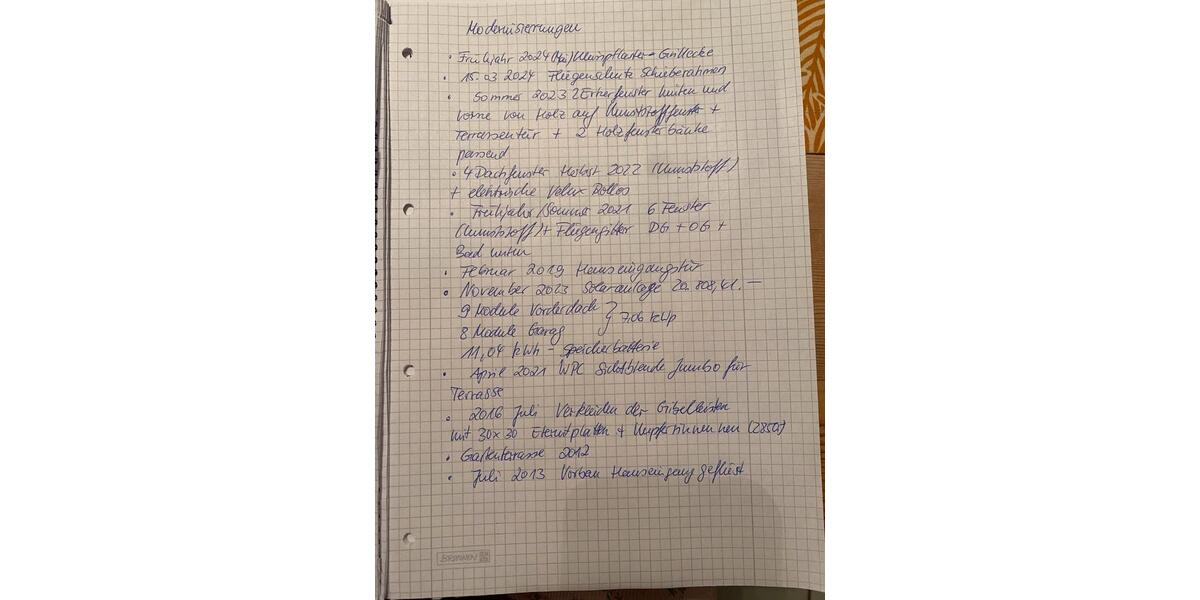 Modernisierungen
• Frühjahr 2024 (Mai) Kleinpflaster - Grillecke
• 15.03 2024 Fliegenschutz Schieberahmen
• Sommer 2023 2 Erkerfenster hinten und
vorne von Holz auf Kunststofffenster +
Terrassentür + 2 Holzfensterbänke
passend
• 4 Dachfenster Herbst 2022 (Kunststoff)
+ elektrische Velux Rollos
• Frühjahr/Sommer 2021 6 Fenster
(Kunststoff) + Fliegengitter DG + OG +
Bad unten
• Februar 2019 Hauseingangstür
• November 2023 Solaranlage 20.808,41.—
9 Module Vorderdach
8 Module Garag } 7,06 kWp
11,04 kWh - Speicherbatterie
• April 2021 WPC Sichtblende Jumbo für
Terrasse
• 2016 Juli Verkleiden der Giebelleisten
mit 30x30 Eternitplatten + Kupferrinnen neu (2850,-)
• Gartenterrasse 2012
• Juli 2013 Vorbau Hauseingang gefliest
BRUNNEN